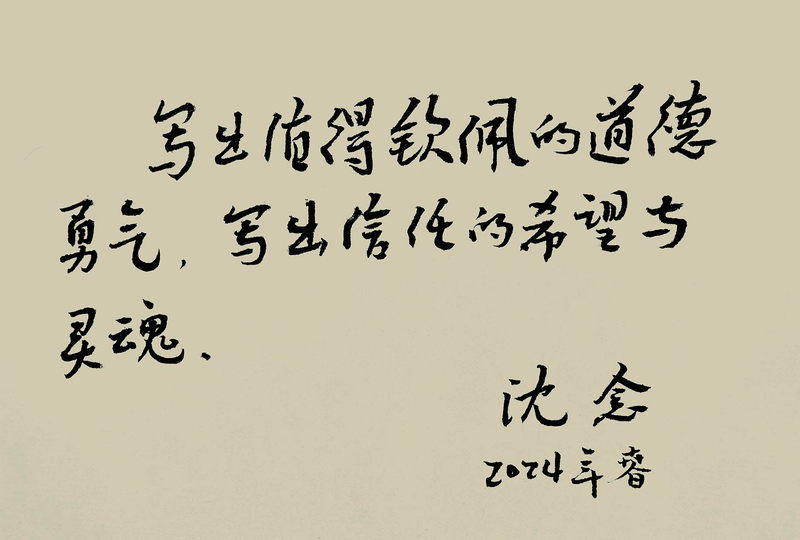 写出值得钦佩的道德
勇气，写出信任的希望与
灵魂.
沈念
2024年春